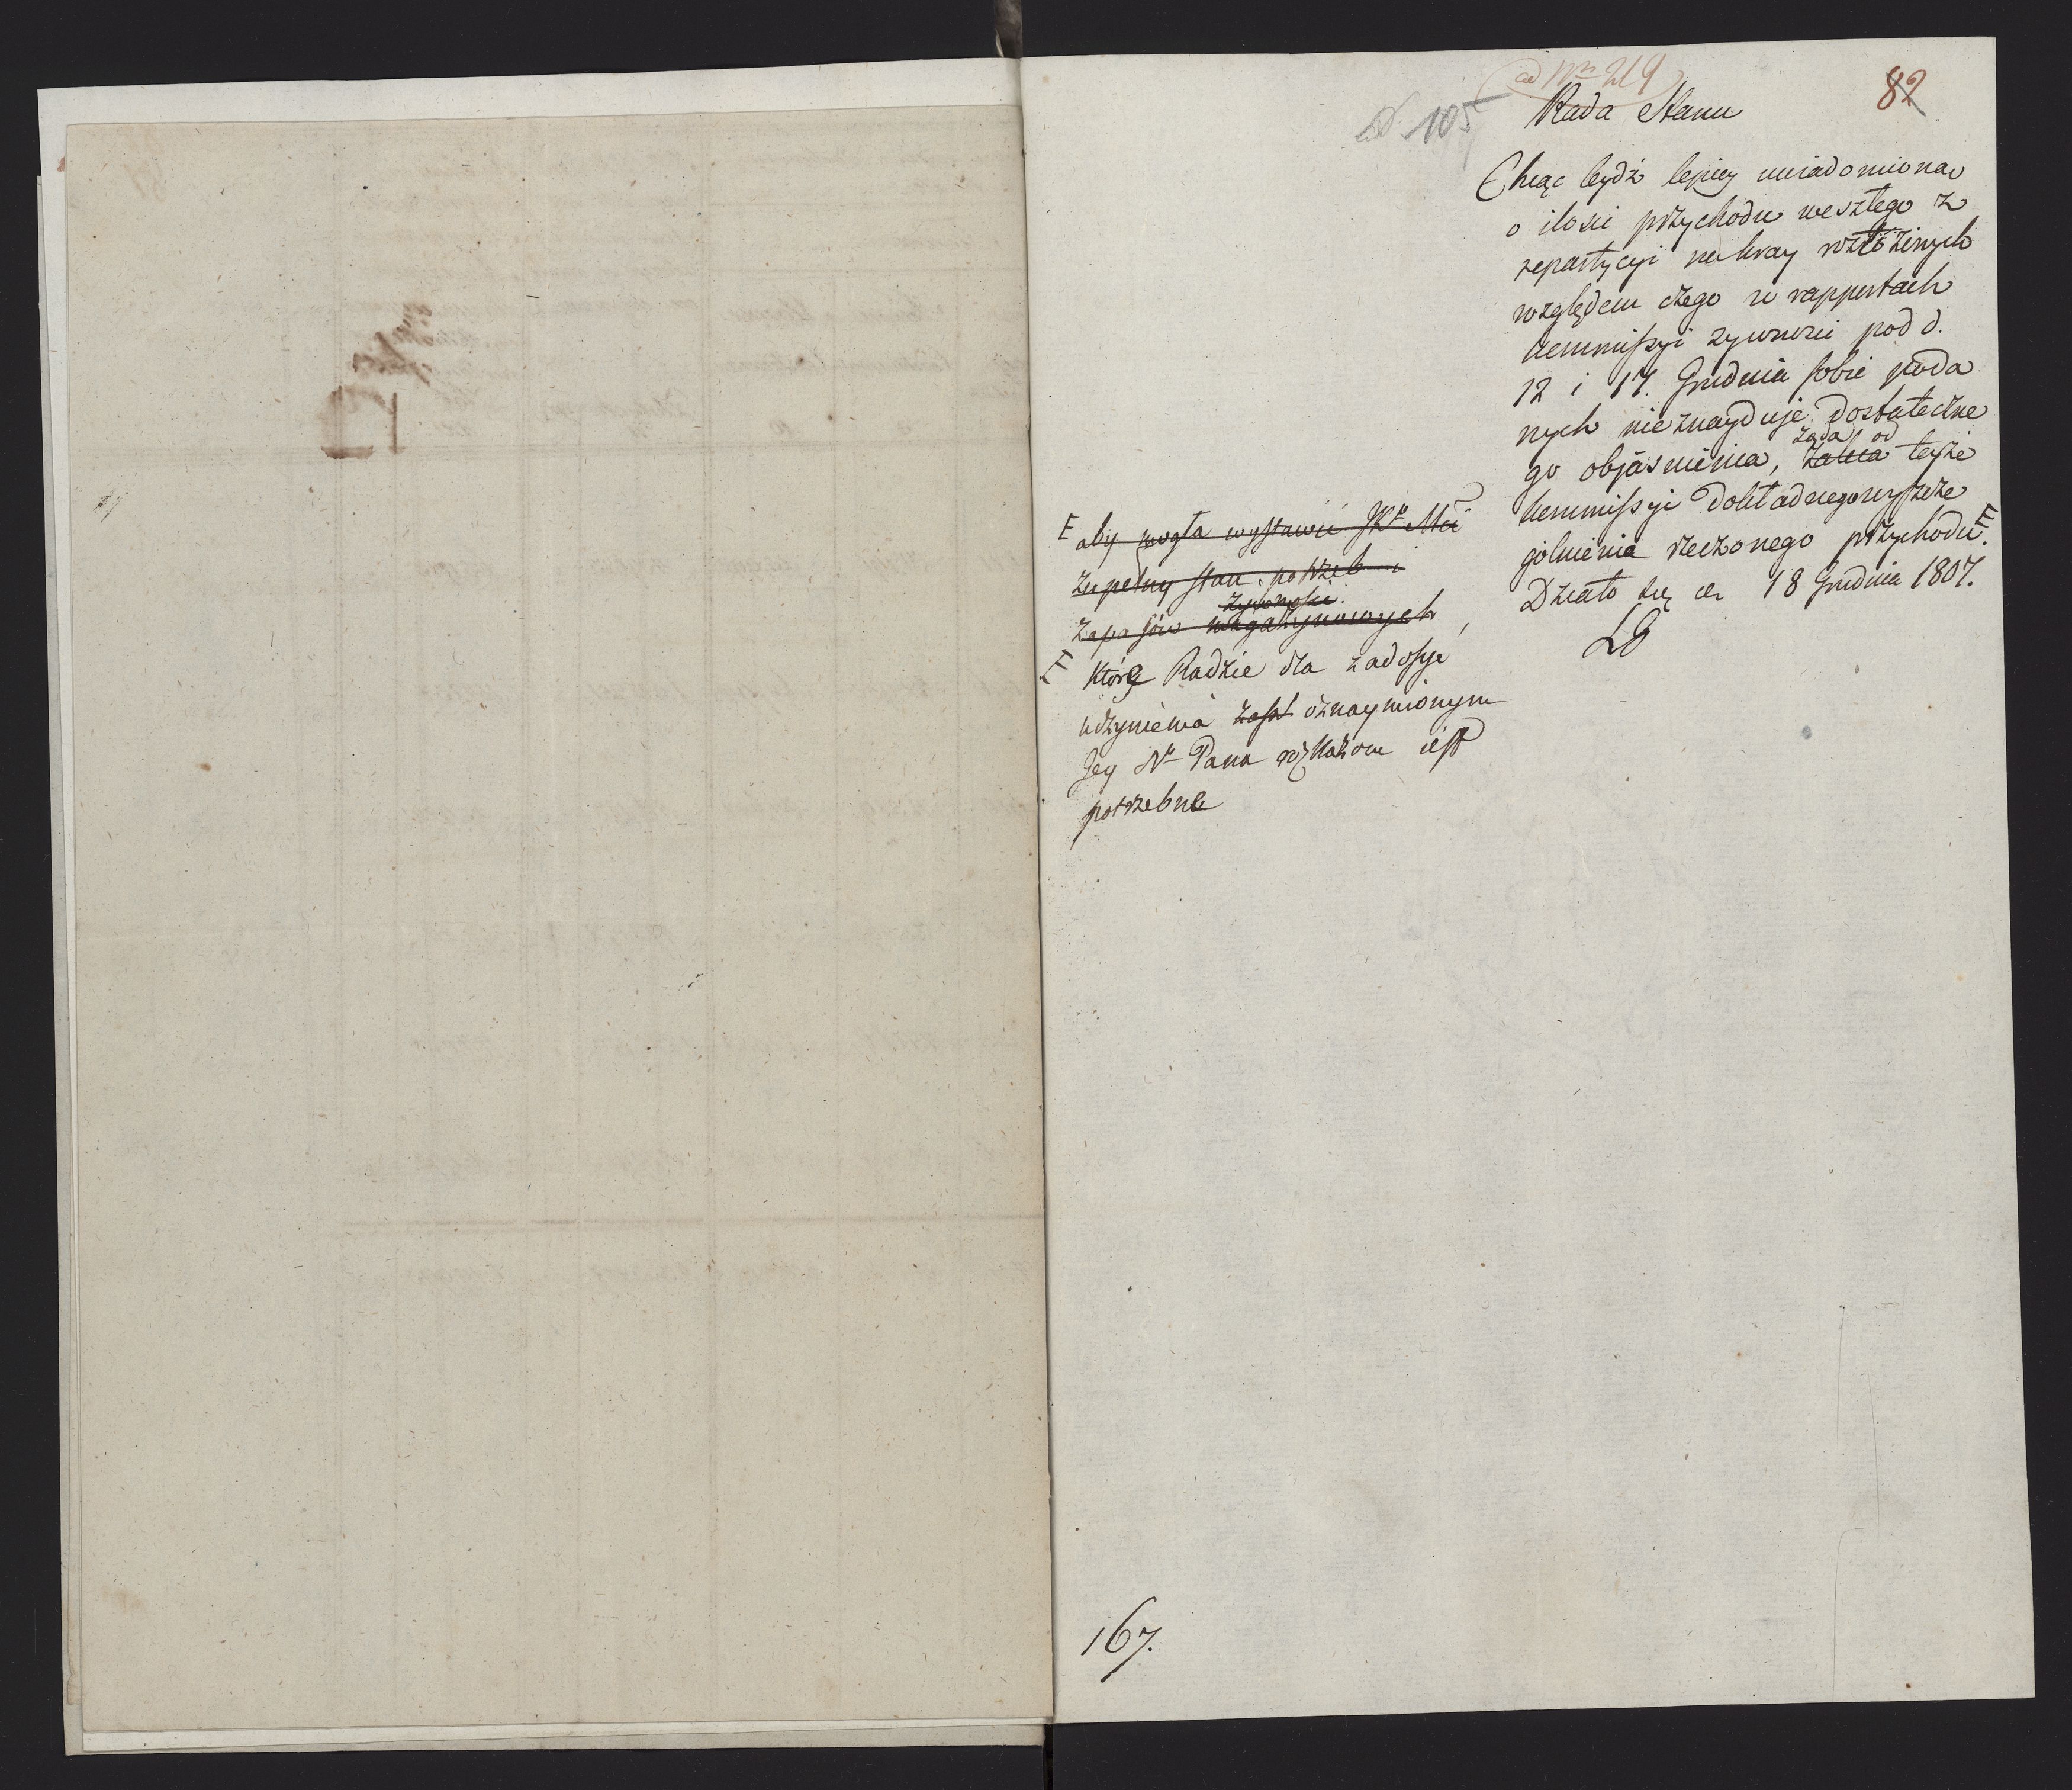 ad Nm 219
82
ad. 105
Rada Stanu
Chcąc bydź lepiey uwiadomiona
o ilości przychodu weszłego z
repartycyi na kray rozłożonych
względem czego w rapportach
kommissyi zywnosci pod d.
12 i 17. Grudnia sobie poda
nych nieznayduje dostateczne
go objasnienia, żąda od teyże
kommissyi dokładnego wyszcze
gólnienia rzeczonego przychodu F.
Działo się d. 18 Grudnia 1807.
LG
F aby mogła wystawić JKr Mci
zupełny stan potrzeb i
żywności
zapasów magazynowych,
F które Radzie dla zadosyć
uczynienia oznaymionym
Jey Nr Pana rozkazom iest
potrzebne
167.